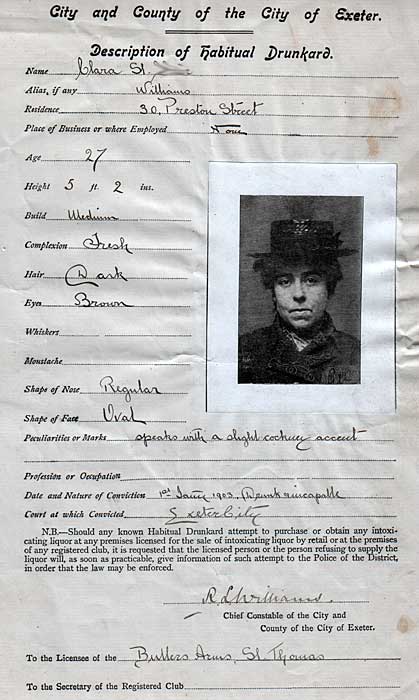 City and County of the City of Exeter.
Description of Habitual Drunkard.
Name Clara St.
Alias, if any Williams
Residence 30, Preston Street
Place of Business or where Employed None
Age 27
Height 5 ft. 2 ins.
Build Medium
Complexion Fresh
Hair Dark
Eyes Brown
Whiskers
Moustache
Shape of Nose Regular
Shape of Face Oval
Peculiarities or Marks speaks with a slight cockney accent
Profession or Occupation
Date and Nature of Conviction 1st Jany 1903, Drunk & incapable
Court at which Convicted Exeter City
N.B.—Should any known Habitual Drunkard attempt to purchase or obtain any intoxi-
cating liquor at any premises licensed for the sale of intoxicating liquor by retail or at the premises
of any registered club, it is requested that the licensed person or the person refusing to supply the
liquor will, as soon as practicable, give information of such attempt to the Police of the District,
in order that the law may be enforced.
Williams.
Chief Constable of the City and
County of the City of Exeter.
To the Licensee of the Butlers Arms, St Thomas
To the Secretary of the Registered Club